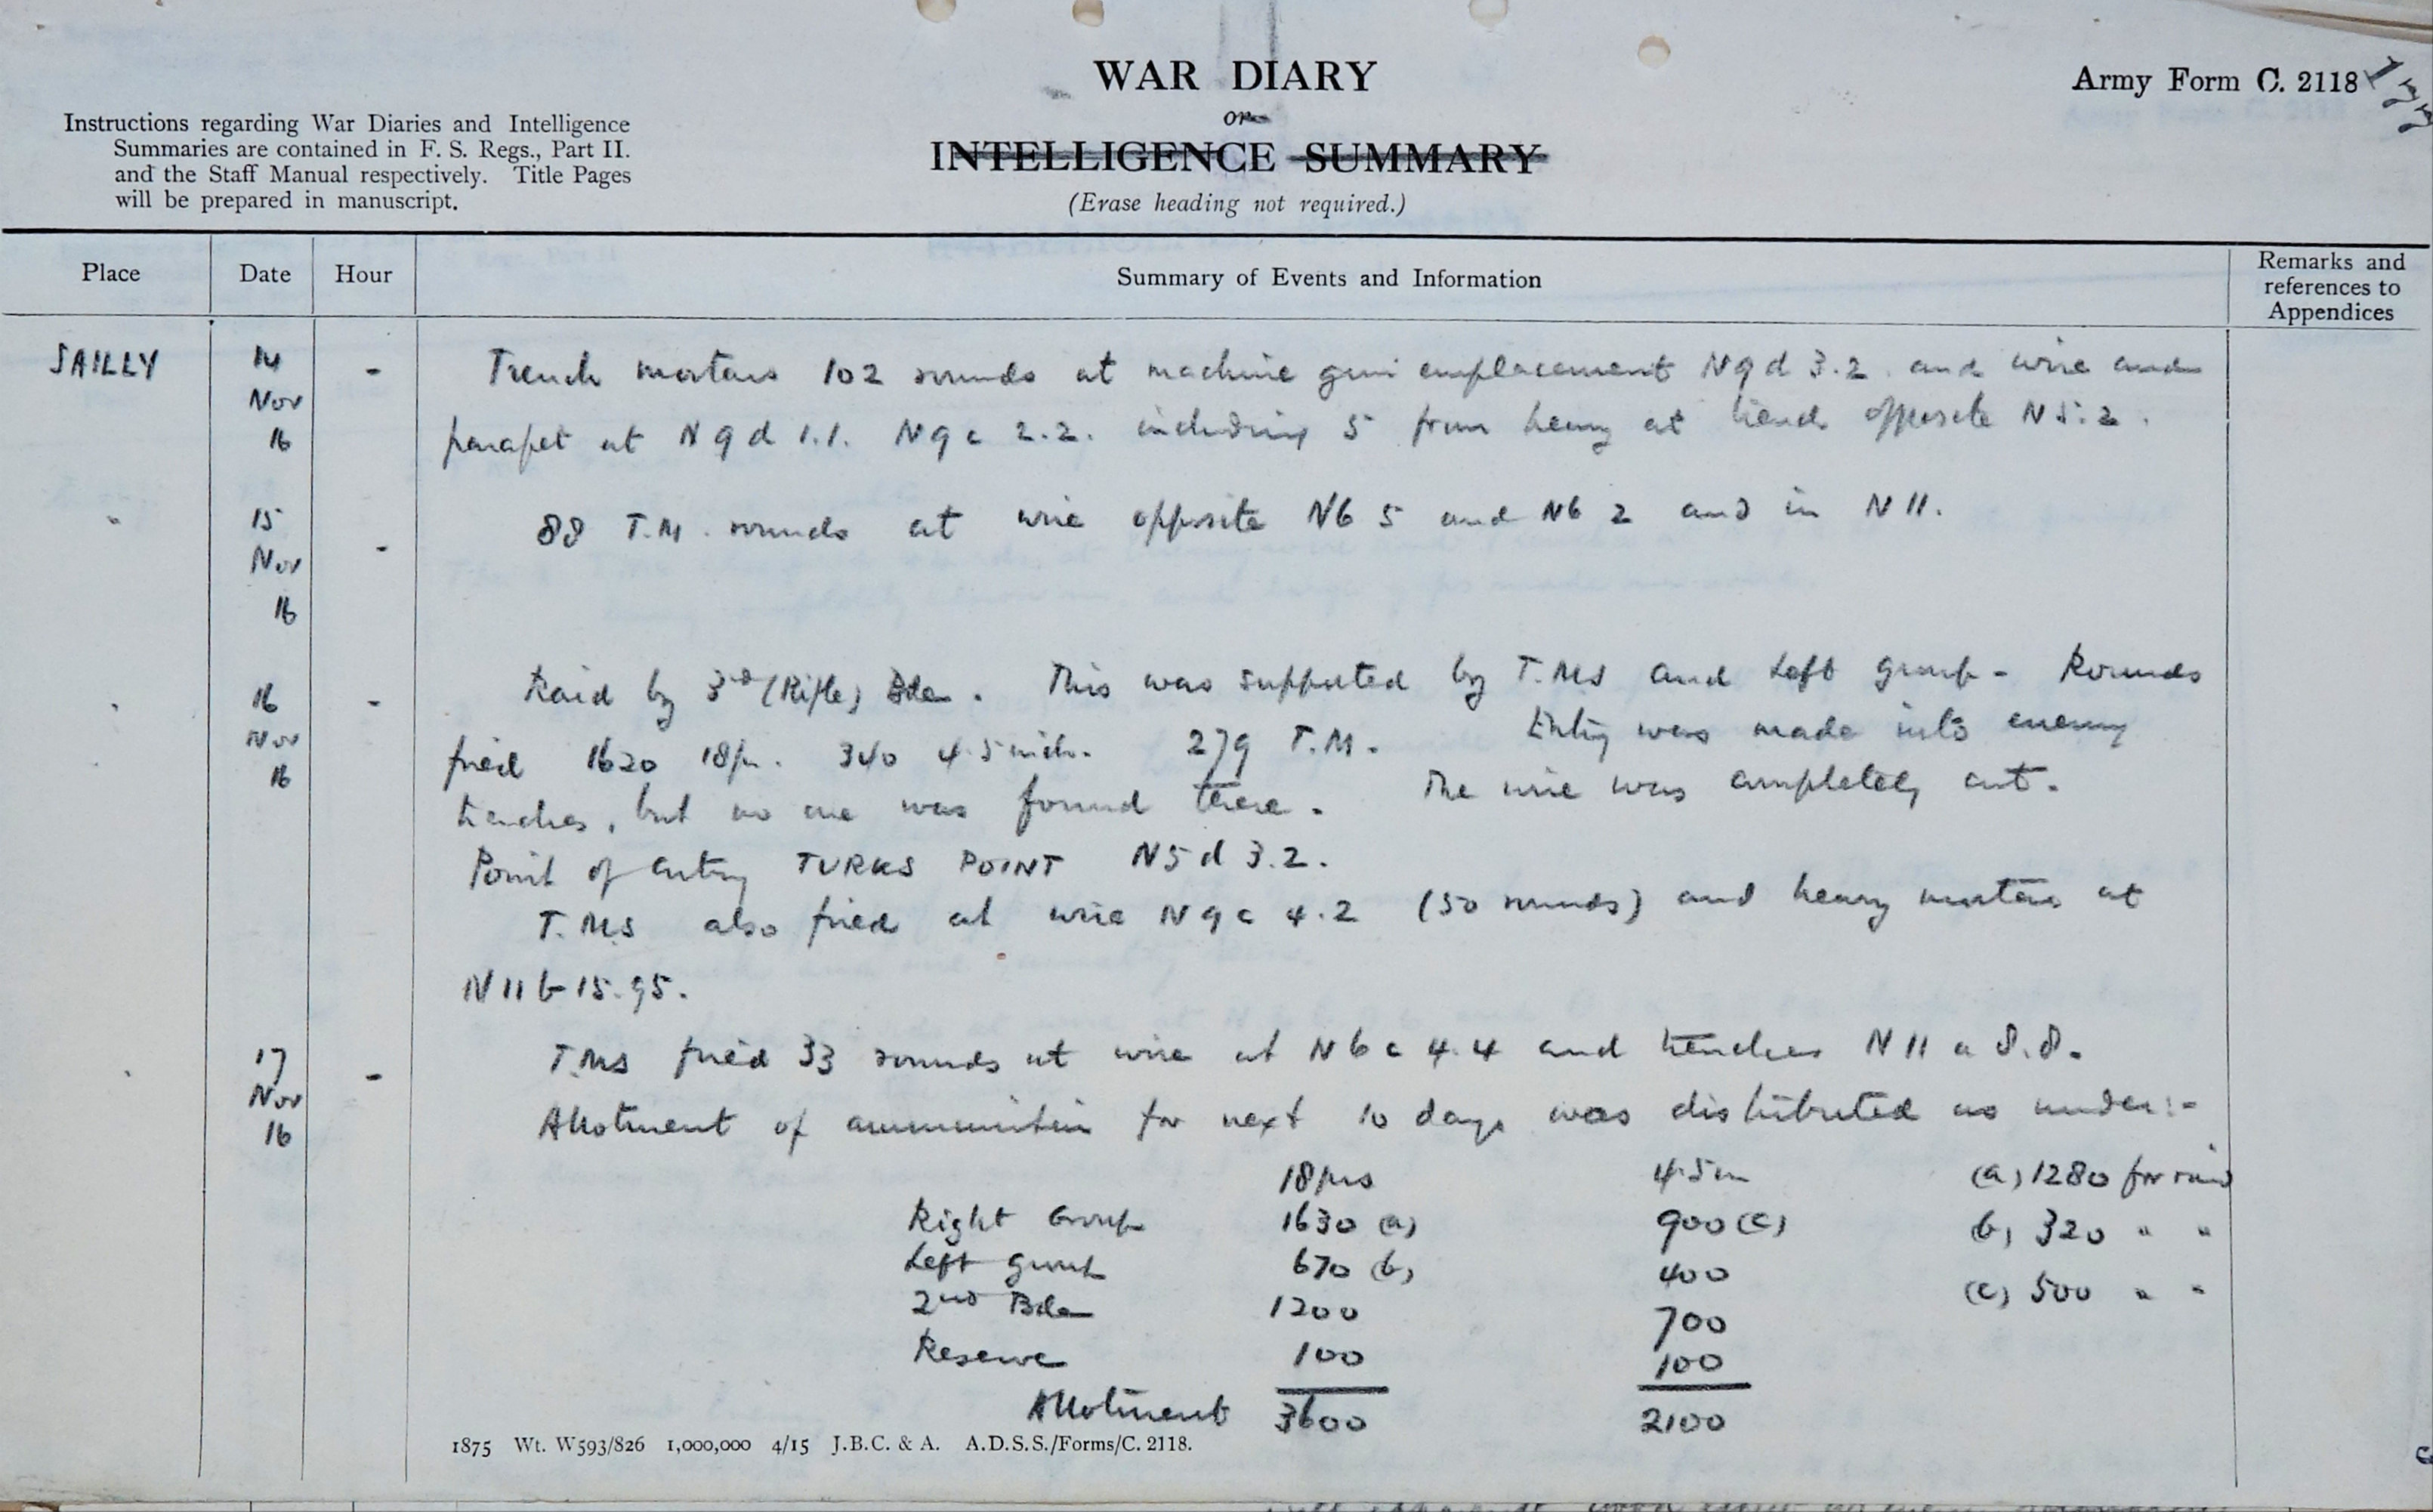 WAR DIARY
or
INTELLIGENCE SUMMARY
(Erase heading not required.)
Army Form C. 2118
Instructions regarding War Diaries and Intelligence
Summaries are contained in F. S. Regs., Part II.
and the Staff Manual respectively. Title Pages
will be prepared in manuscript.
Place Date Hour Summary of Events and Information Remarks and
references to
Appendices
SAILLY 14 - Trench mortars 102 rounds at machine gun emplacement N9d 3.2. and wire and
Nov
16 parapet at N9d 1.1. N9c 2.2. including 5 from heavy at trench opposite N5.2.
" 15 - 88 T.M. rounds at wire opposite N6 5 and N6 2 and in N11.
Nov
16
" 16 - Raid by 3rd (Rifle) Bde. This was supported by T.Ms and Left group - Rounds
Nov fired 1620 18pr. 340 4.5 inch. 279 T.M. Entry was made into enemy
16 trenches, but no one was found there. The wire was completely cut.
Point of entry TURKS POINT N5d 3.2.
T.Ms also fired at wire N9c 4.2 (50 rounds) and heavy mortars at
N11b 15.95.
" 17 - T.Ms fired 33 rounds at wire at N6c 4.4 and trenches N11a 8.8.
Nov Allotment of ammunition for next 10 days was distributed as under:-
16
18prs 4.5in (a) 1280 for raid
Right Group 1630 (a) 900 (c) b) 320 " "
Left group 670 (b) 400 (c) 500 " "
2nd Bde 1200 700
Reserve 100 100
Allotment 3600 2100
1875 Wt. W593/826 1,000,000 4/15 J.B.C. & A. A.D.S.S./Forms/C. 2118.